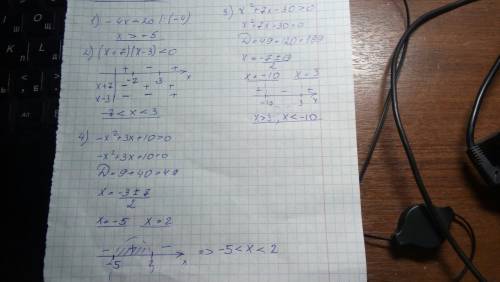 1) -4x < 20 | : (-4)
x > -5
2) (x+7)(x-3) < 0
+ - +
-7 3 x
x+7 - + +
x-3 - - +
-7 < x < 3
3) x²+7x-30 > 0
x²+7x-30=0
D=49+120=169
x = -7±13
2
x=-10 x=3
+ - +
-10 3 x
x>3, x<-10
4) -x²+3x+10>0
-x²+3x+10=0
D=9+40=49
x = -3±7
2
x=-5 x=2
- + -
-5 2 x
=> -5 < x < 2